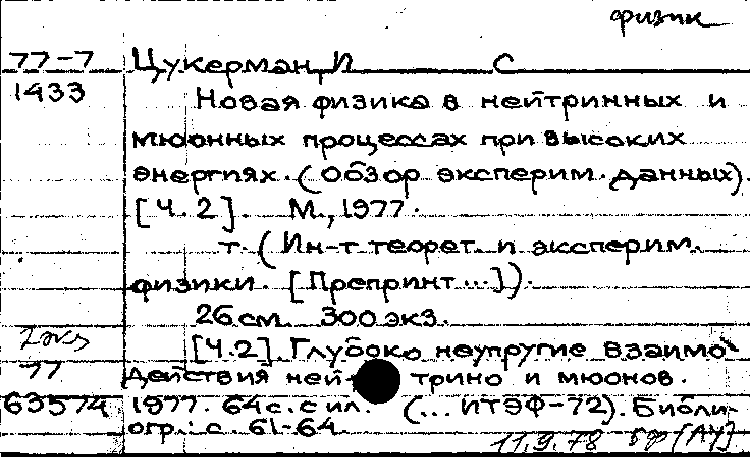 физик
77-7 Цукерман, И С
1433 Новая физика в нейтринных и
мюонных процессах при высоких
энергиях. (Обзор эксперим. данных).
[Ч. 2]. М., 1977.
т. (Ин-т теорет. и эксперим.
физики. [Препринт ...]).
26 см. 300 экз.
[Ч. 2]. Глубоко неупругие взаимо-
77 действия нейтрино и мюонов.
63574 1977. 64 с. с ил. (... ИТЭФ-72). Библи-
огр.: с. 61-64.
11.9.78